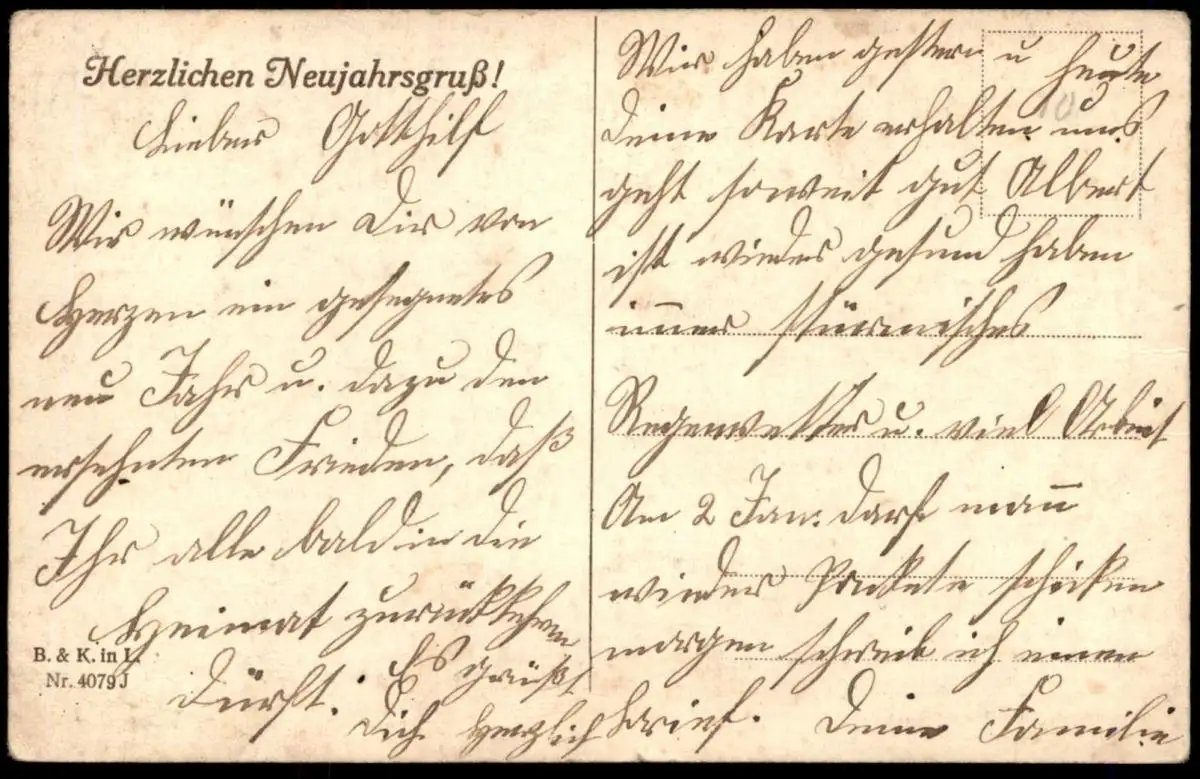 Herzlichen Neujahrsgruß!
Lieber Gotthilf
Wir wünschen Dir von
Herzen ein gesegnetes
neu Jahr u. dazu den
ersehnten Frieden, daß
Ihr alle bald in die
Heimat zurückkehren
dürft. Es grüßt
Dich herzlich
B. & K. in L.
Nr. 4079 J
Wir haben gestern u heute
deine Karte erhalten uns
geht soweit gut Albert
ist wieder gesund haben
im̅er stürmisches
Regenwetter u. viel Arbeit
Am 2 Jan. darf man̅
wieder Packete schicken
morgen schreib ich einen
Brief. Deine Familie